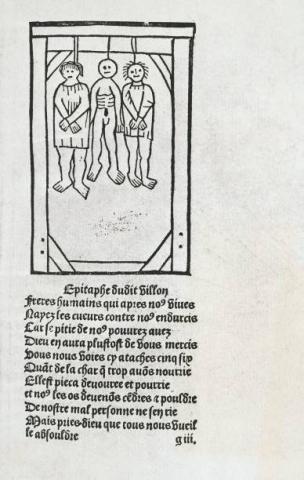 Epitaphe dudit Villon
Freres humains qui apres noꝰ viues
Nayez les cueurs contre noꝰ endurcis
Car se pitie de noꝰ pouurez auez
Dieu en aura plustost de vous mercis
Vous nous voies cy ataches cinq six
Quãt de la char q̃ trop auõs nourrie
Ellest pieca deuouree et pourrie
et noꝰ les os deuenõs cẽdres a pouldre
De nostre mal personne ne sen rie
Mais pries dieu que tous nous vueil
le absouldre
g iii.